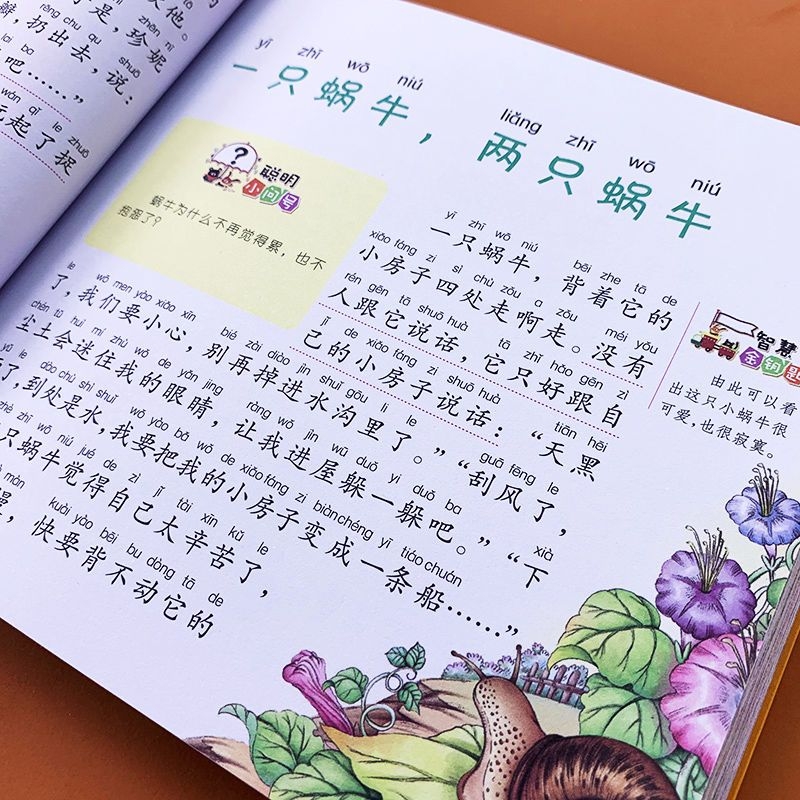 次他。
rēng chu qu
于是，珍妮
瓣，扔出去，说：
吧……”
wán qǐ le zhuō
玩起了捉
yī zhī wō niú liǎng zhī wō niú
一只蜗牛，两只蜗牛
聪明
小问号
蜗牛为什么不再觉得累，也不
抱怨了？
yī zhī wō niú bēi zhe tā de
一只蜗牛，背着它的
xiǎo fáng zi sì chù zǒu a zǒu méi yǒu
小房子四处走啊走。没有
rén gēn tā shuō huà tā zhǐ hǎo gēn zì
人跟它说话，它只好跟自
jǐ de xiǎo fáng zi shuō huà tiān hēi
己的小房子说话：“天黑
le wǒ men yào xiǎo xīn bié zài diào jìn shuǐ gōu lǐ le guā fēng le
了，我们要小心，别再掉进水沟里了。”“刮风了，
chén tǔ huì mí zhù wǒ de yǎn jing ràng wǒ jìn wū duǒ yi duǒ ba xià
尘土会迷住我的眼睛，让我进屋躲一躲吧。”“下
yǔ le dào chù shì shuǐ wǒ yào bǎ wǒ de xiǎo fáng zi biàn chéng yì tiáo chuán
了，到处是水，我要把我的小房子变成一条船……”
zhè zhī wō niú jué de zì jǐ tài xīn kǔ le
只蜗牛觉得自己太辛苦了，
màn kuài yào bēi bu dòng tā de
慢，快要背不动它的
智慧
金钥匙
由此可以看
出这只小蜗牛很
可爱，也很寂寞。